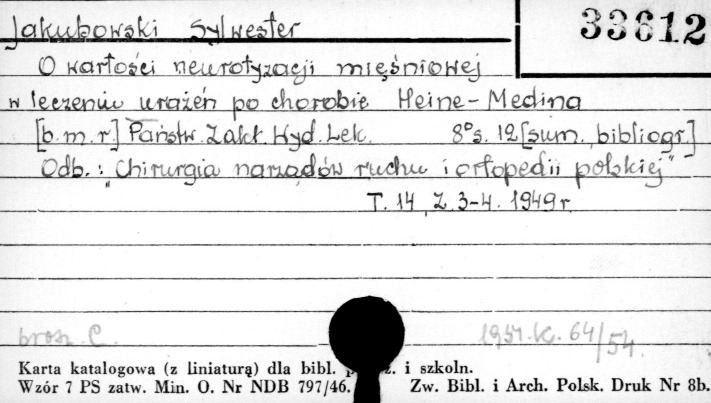 Jakubowski Sylwester
33612
O wartości neurotyzacji mięśniowej
w leczeniu urażeń po chorobie Heine-Medina
[b.m.r.] Państw. Zakł. Wyd. Lek. 8° s. 12 [sum., bibliogr.]
Odb.: "Chirurgia narządów ruchu i ortopedii polskiej"
T. 14, Z. 3-4. 1949 r.
brosz. C.
64/54.
Karta katalogowa (z liniaturą) dla bibl. i szkoln.
Wzór 7 PS zatw. Min. O. Nr NDB 797/46. Zw. Bibl. i Arch. Polsk. Druk Nr 8b.